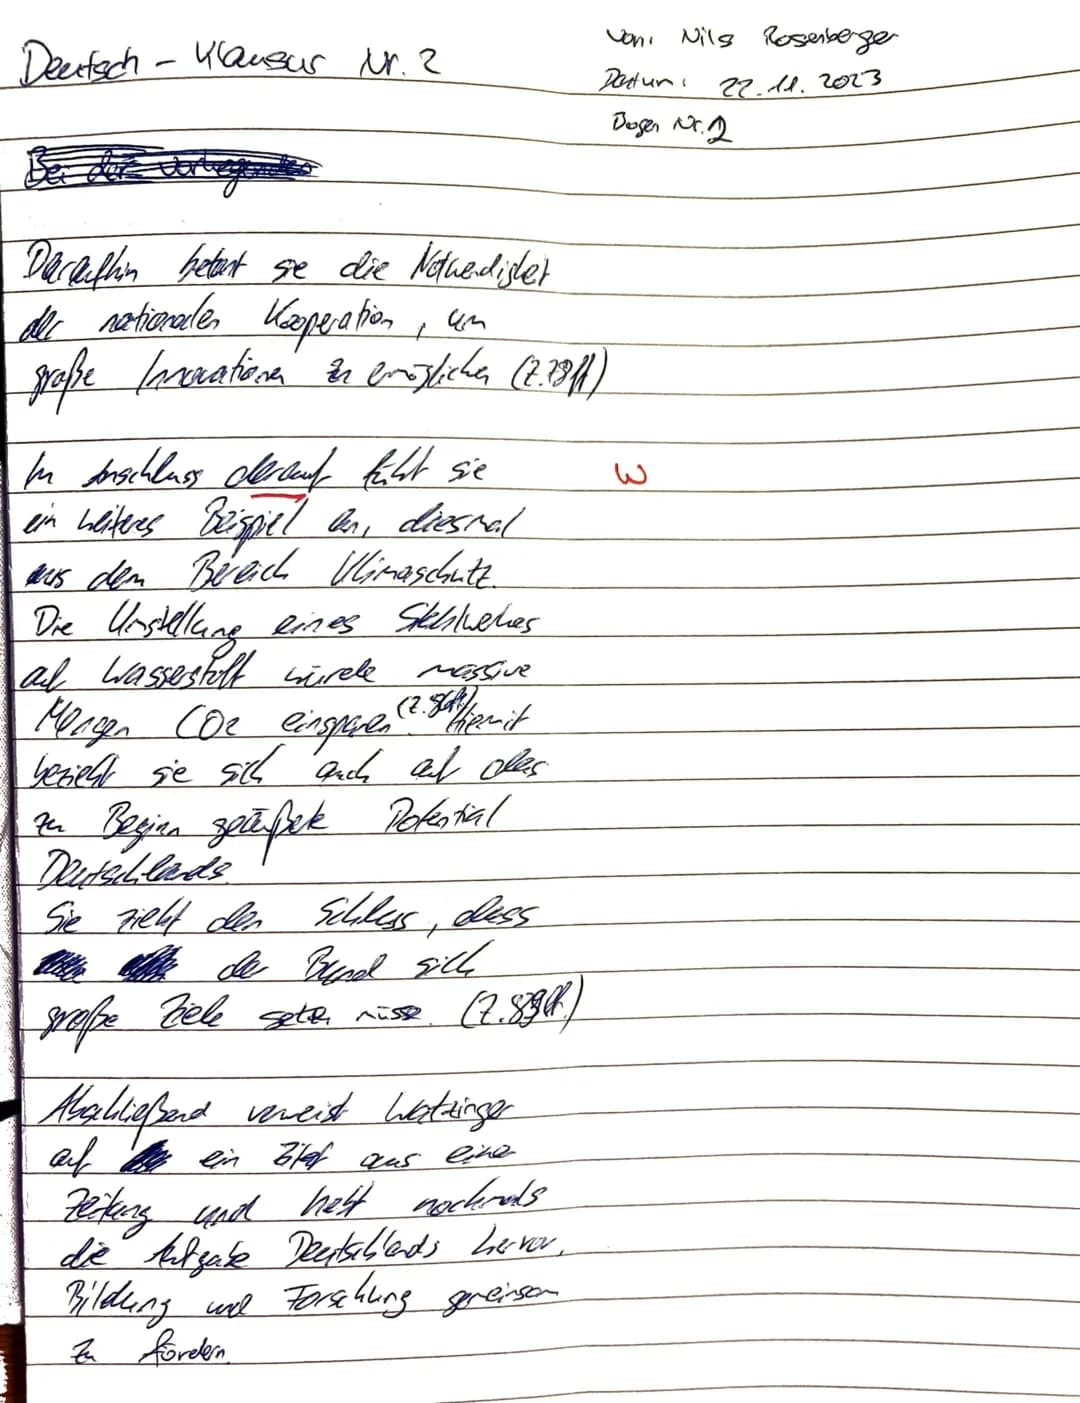 Deutsch - Klausur Nr. 2
Von: Nils Rosenberger
Datum: 22.11.2023
Bogen Nr. 2
Bei der vorliegenden
Daraufhin betont sie die Notwendigkeit
der nationalen Kooperation, um
große Innovationen zu ermöglichen (Z.79ff)
Im Anschluss darauf führt sie
W
ein weiteres Beispiel an, diesmal
aus dem Bereich Klimaschutz.
Die Umstellung eines Stahlwerkes
auf Wasserstoff würde massive
Mengen CO2 einsparen (Z.86ff). Hiermit
bezieht sie sich auch auf das
zu Beginn geäußerte Potential
Deutschlands.
Sie zieht den Schluss, dass
der Bund sich
große Ziele setzen müsse. (Z.89ff.)
Abschließend verweist Watzinger
auf ein Zitat aus einer
Zeitung und hebt nochmals
die Aufgabe Deutschlands hervor,
Bildung und Forschung gemeinsam
zu fördern.